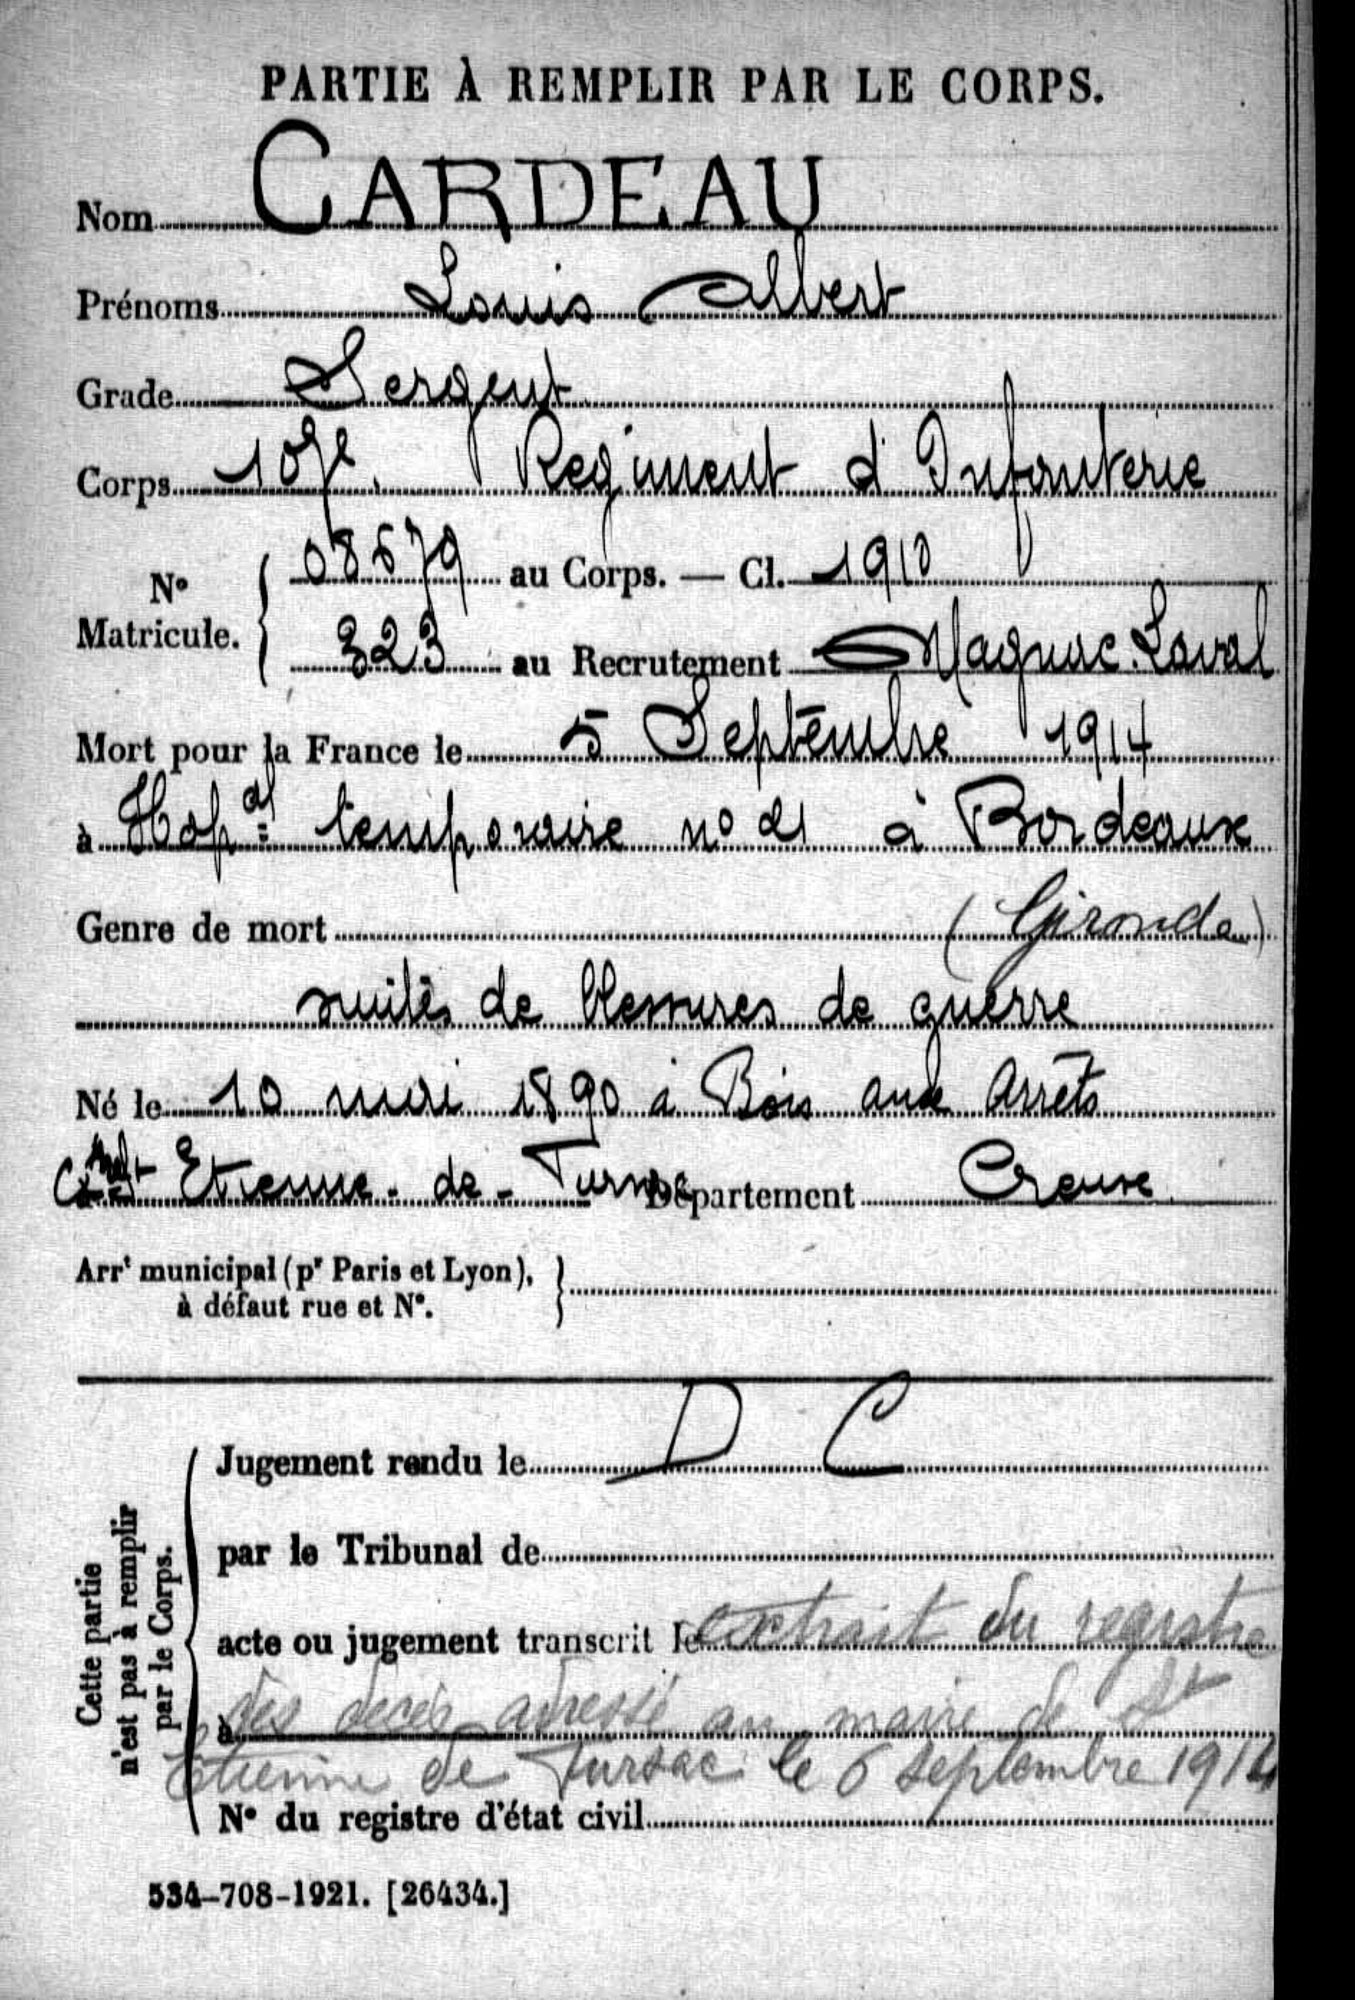 PARTIE À REMPLIR PAR LE CORPS.
Nom CARDEAU
Prénoms Louis Albert
Grade Sergent
Corps 107e. Régiment d'Infanterie
N° Matricule. { 08679 au Corps. — Cl. 1910
323 au Recrutement Magnac-Laval
Mort pour la France le 5 Septembre 1914
à Hop al temporaire n° 21 à Bordeaux
Genre de mort (Gironde)
suites de blessures de guerre
Né le 10 mai 1890 à Bois aux Arrêts
St Etienne-de-Fursac Département Creuse
Arrt municipal (pr Paris et Lyon), }
à défaut rue et N°.
Jugement rendu le D C
par le Tribunal de
acte ou jugement transcrit le extrait du registre
à des décés adressé au maire de St
Etienne de Fursac le 6 septembre 1914
N° du registre d'état civil
Cette partie
n'est pas à remplir
par le Corps.
534-708-1921. [26434.]